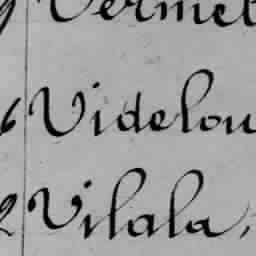 Vermel
6 Videlou
2 Vilala,